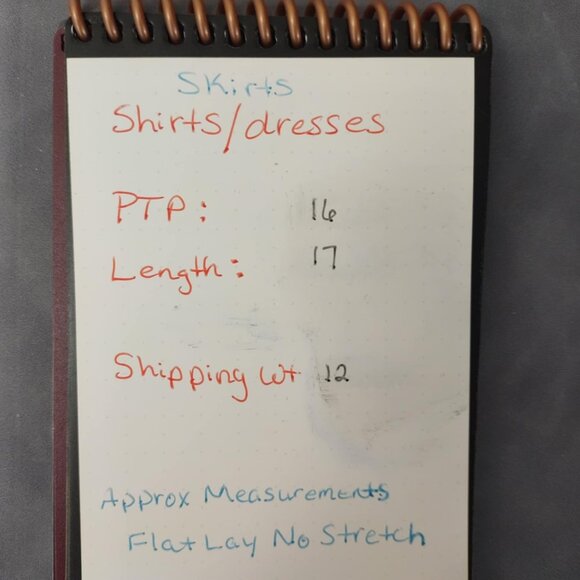 Skirts
Shirts/dresses
PTP: 16
Length: 17
Shipping Wt 12
Approx Measurements
Flat Lay No Stretch